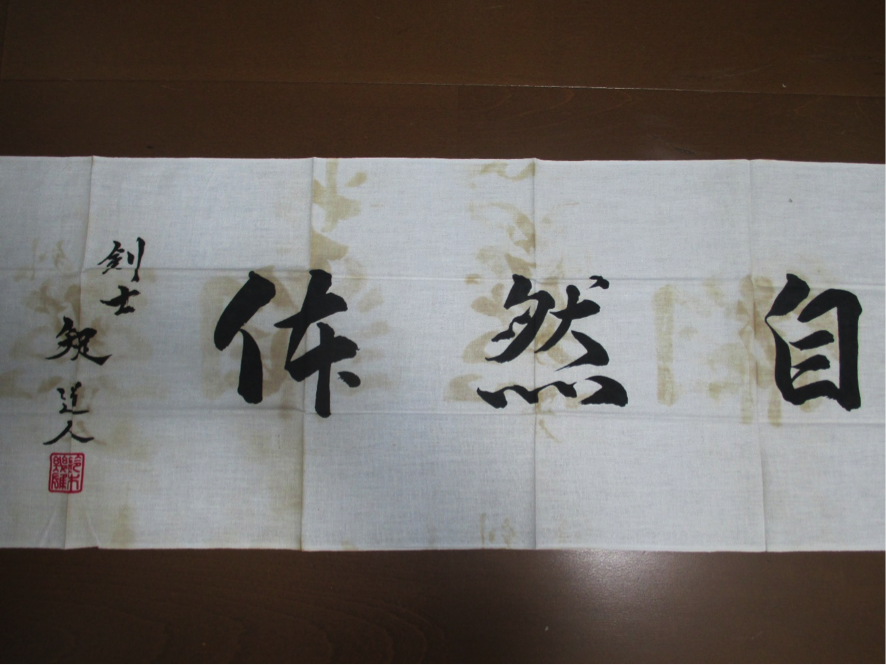 自然体
剣士
道人